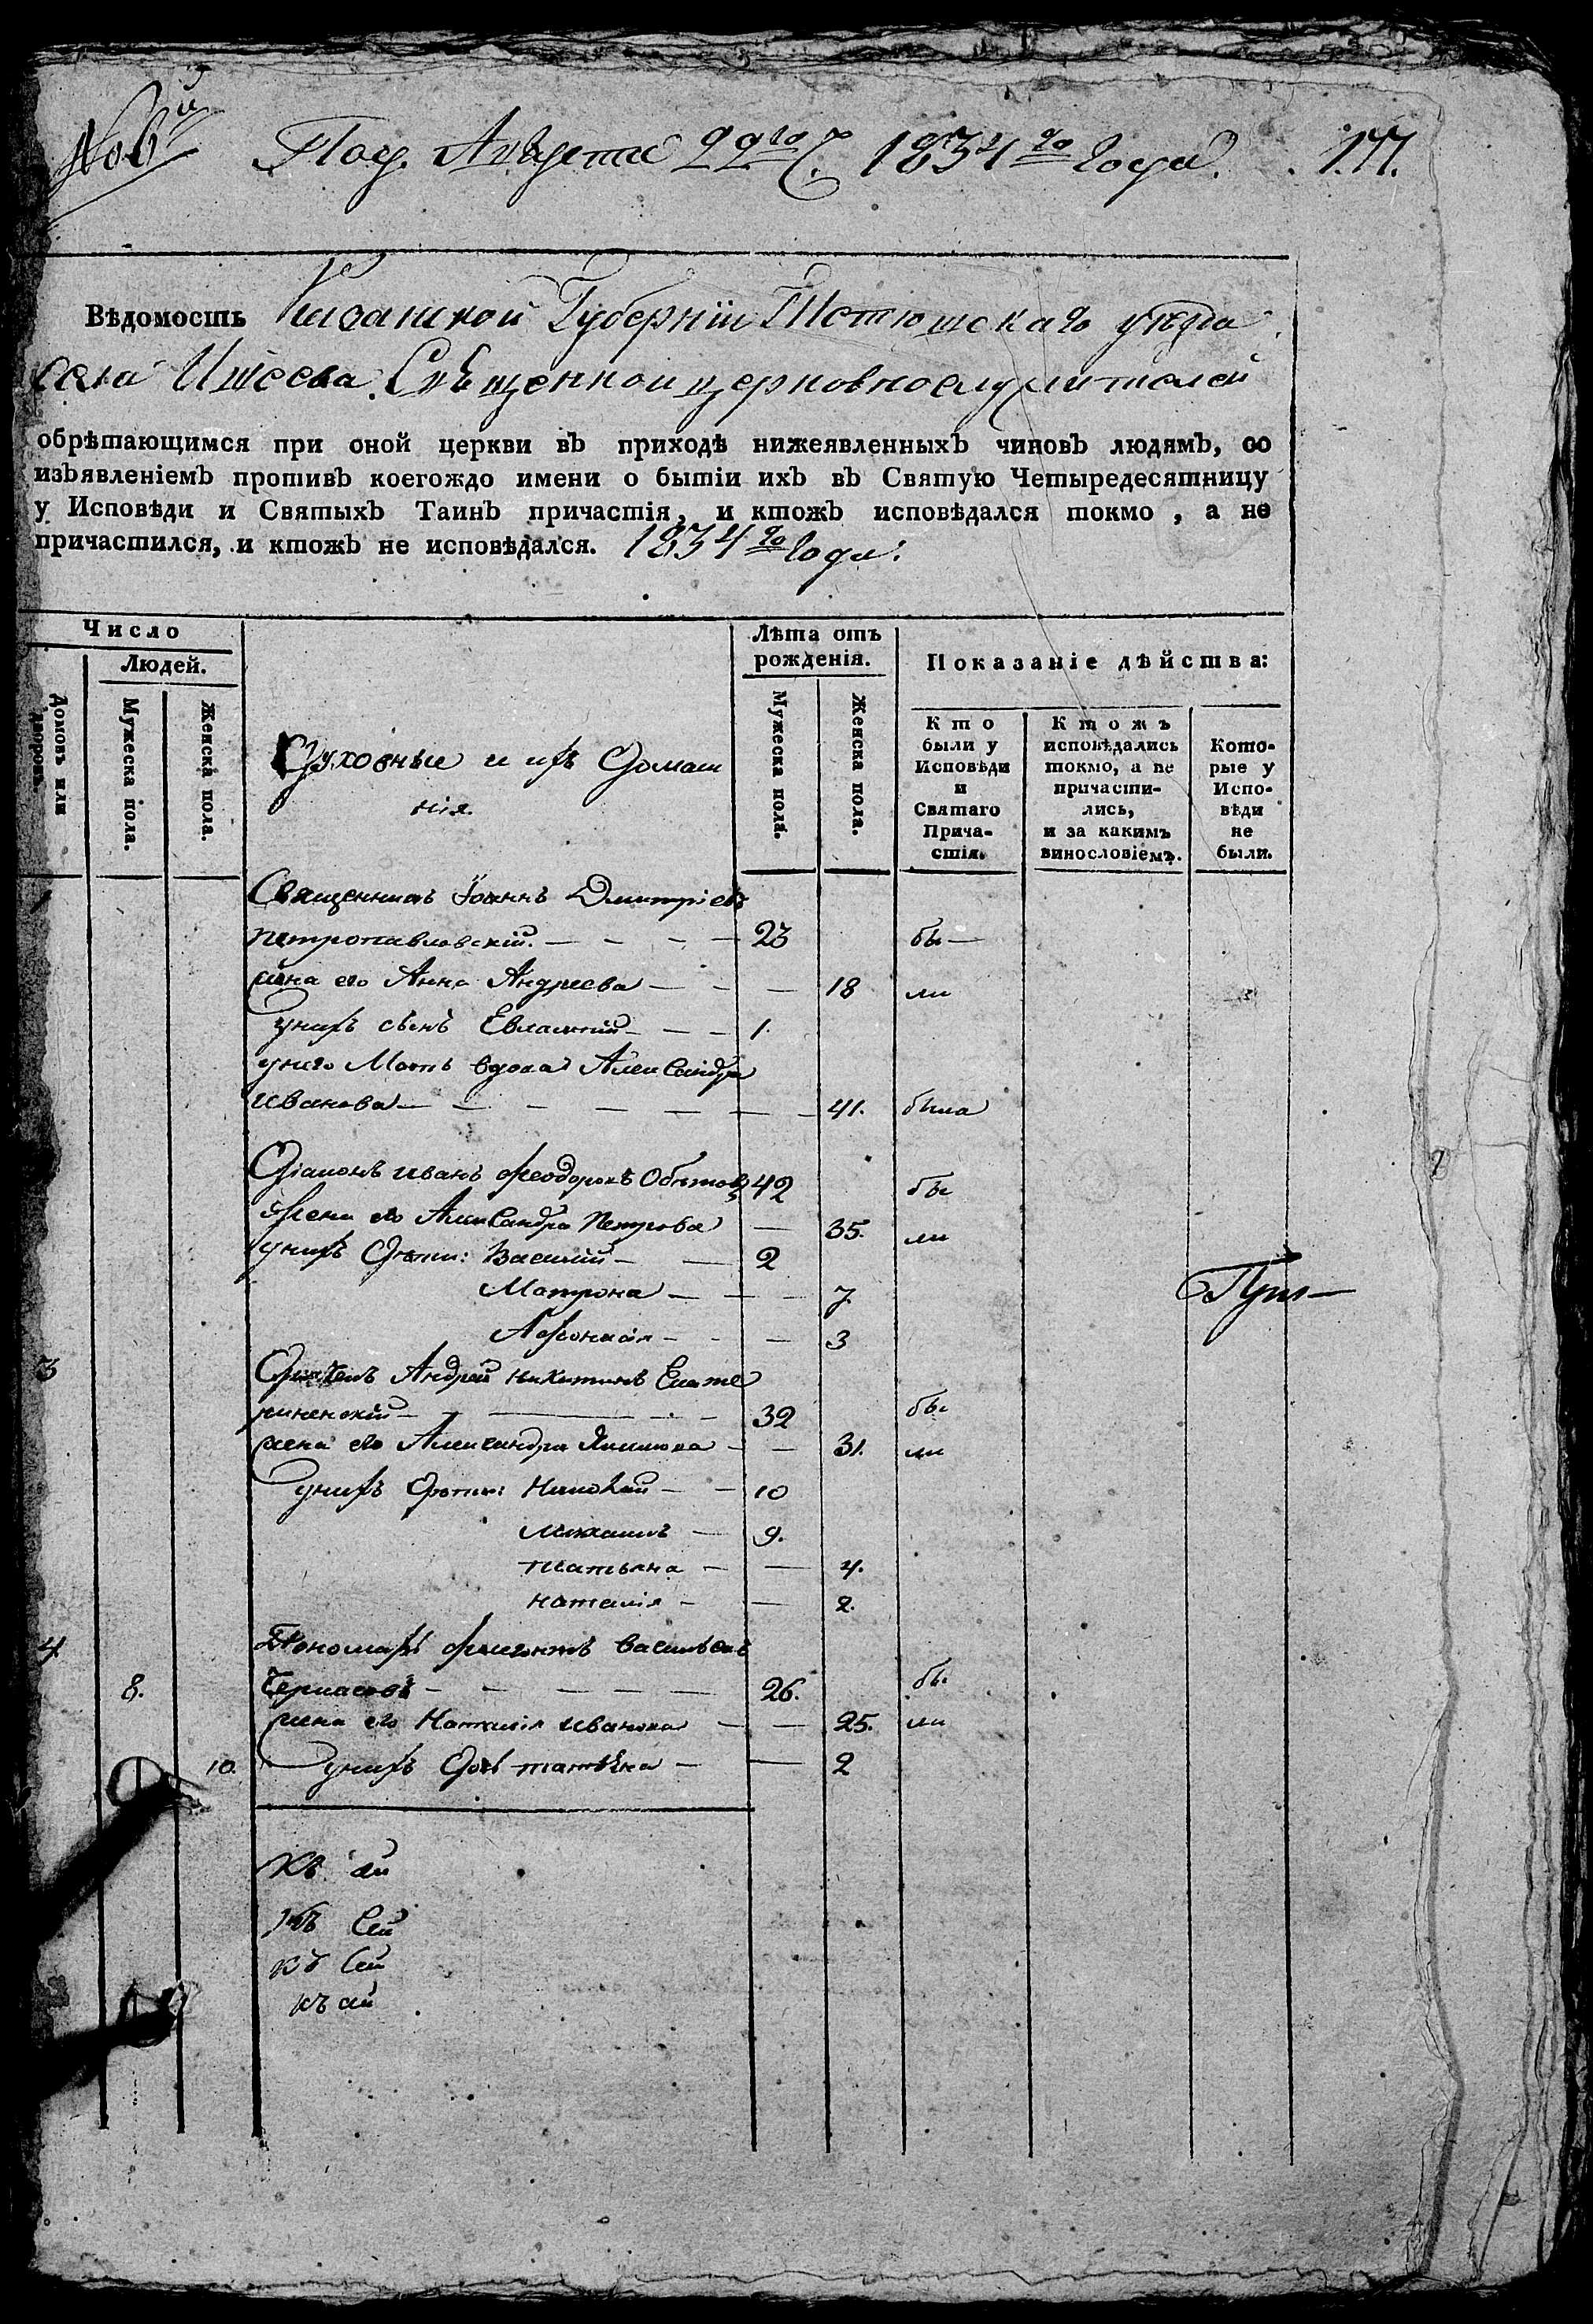 Под. Августа 22го 1834го года. 177.
Вѣдомость Казанской Губернiи Тетюшскаго уѣзда
села Ишеева Священноицерковнослужителей
обрѣтающимся при оной церкви въ приходѣ нижеявленныхъ чиновъ людямъ, со
изъявленіемъ противъ коегождо имени о бытіи ихъ въ Святую Четыредесятницу
у Исповѣди и Святыхъ Таинъ причастія, и ктожъ исповѣдался токмо, а не
причастился, и ктожъ не исповѣдался. 1834го года.
Число
Людей.
Домовъ или дворовъ.
Мужеска пола.
Женска пола.
Духовные и ихъ домаш
нія.
Лѣта отъ
рожденія.
Мужеска пола.
Женска пола.
Показаніе дѣйства:
Кто
были у
Исповѣди
и
Святаго
Прича-
стія.
Ктожъ
исповѣдались
токмо, а не
причасти-
лись,
и за какимъ
винословіемъ.
Кото-
рые у
Испо-
вѣди
не
были.
1 Священникъ Іоаннъ Дмитріевъ
Петропавловскій. — — — — 23 бы—
жена его Анна Андреева — — — 18 ли
у нихъ сынъ Евлампій — — — 1.
у него Мать вдова Александра
Иванова — — — — — — — 41. была
Діаконъ Иванъ Феодоровъ 42 бы
Жена его Александра Петрова — 35. ли
у нихъ Дѣти: Василій — — 2
Матрона — — — 7
— — — 3
3 Андрей Никитинъ
— — — — 32 бы
жена его Александра — — 31. ли
у нихъ Дѣти: Николай — — 10
Михаилъ — 9.
татьяна — — 4.
наталія — — 2.
4 Пономарь Филиппъ Васильевъ
8. Черкасовъ — — — — — 26. бы
жена его Наталія Иванова — — 25. ли
10. у нихъ Дочь татьяна — — 2
къ ай
къ сей
къ сей
къ ай